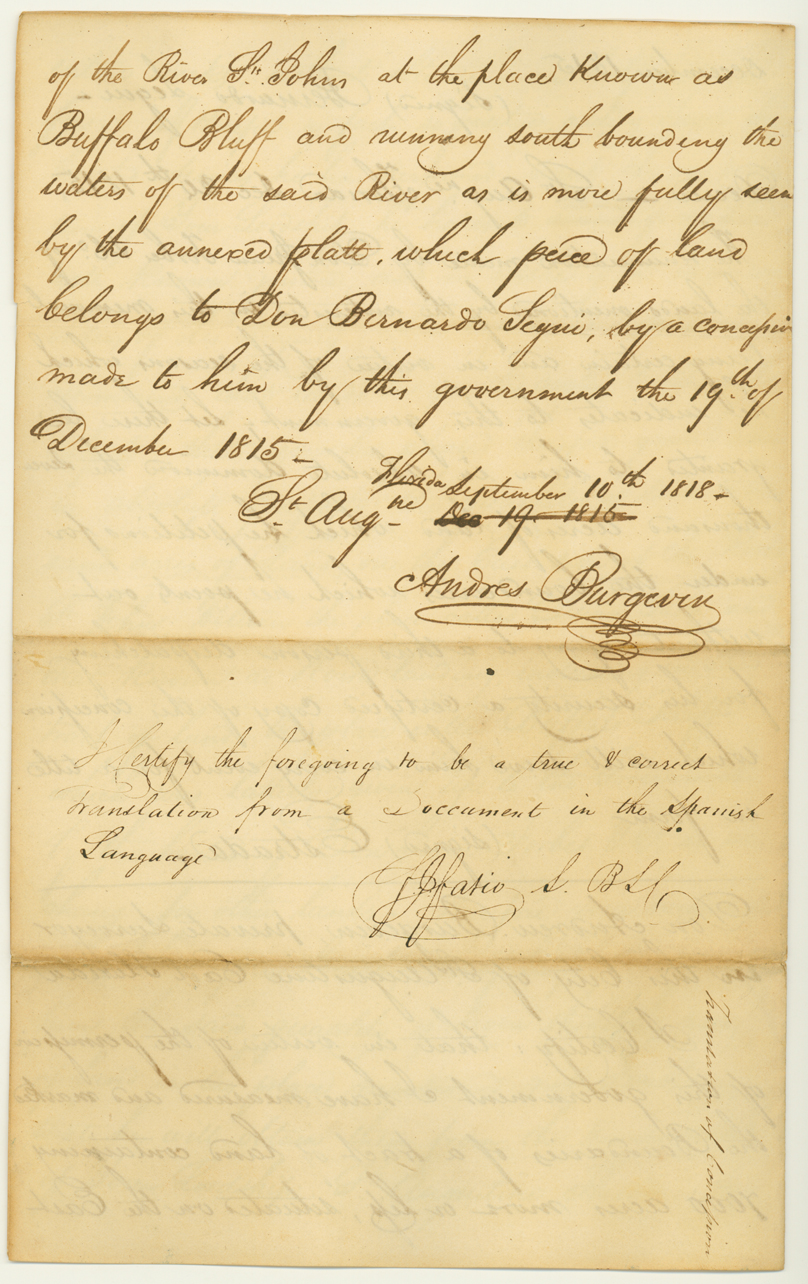 of the River St. Johns at the place Known as
Buffalo Bluff and running south bounding the
waters of the said River as is more fully seen
by the annexed platt, which peice of land
belongs to Don Bernardo Segui, by a concession
made to him by this government the 19th of
December 1815 -
Florida September 10th 1818 -
St Augne Dec 19 1815
Andres Burgevin
I Certify the foregoing to be a true & correct
Translation from a Doccument in the Spanish
Language
F J Fatio S. B L C
Translation of Concession